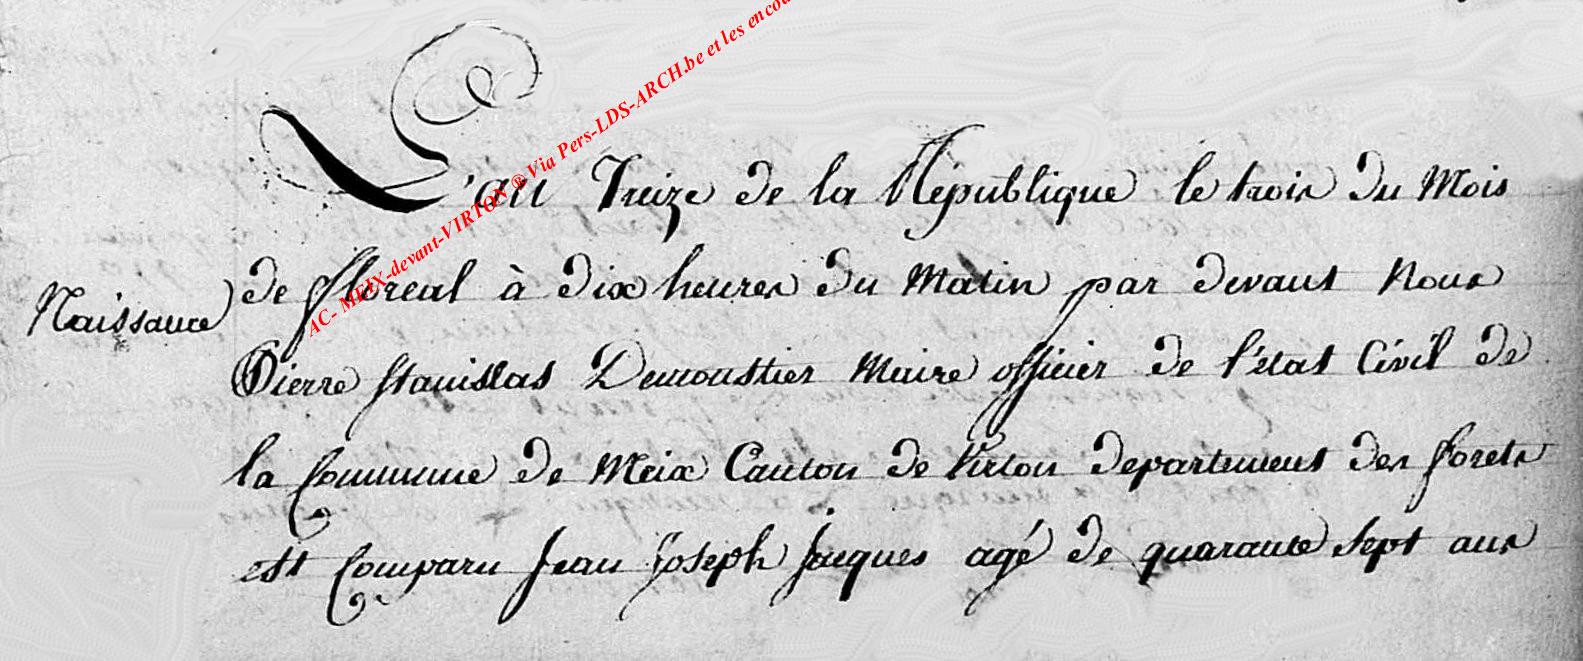 L'an Treize de la Republique le trois du Mois
Naissance de floreal à dix heures du Matin par devant Nous
Pierre Stanislas Demoustier Maire officier de l'état Civil de
la Commune de Meix Canton de Virton departement des forets
est Comparu Jean Joseph Jacques agé de quarante Sept ans
AC- MEIX-devant-VIRTON ® Via Pers-LDS-ARCH.be et les encou